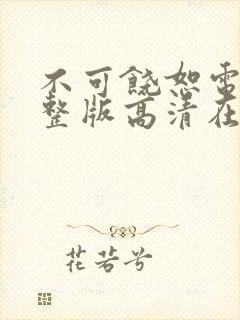 不可饶恕雷
整版高清在
花若兮